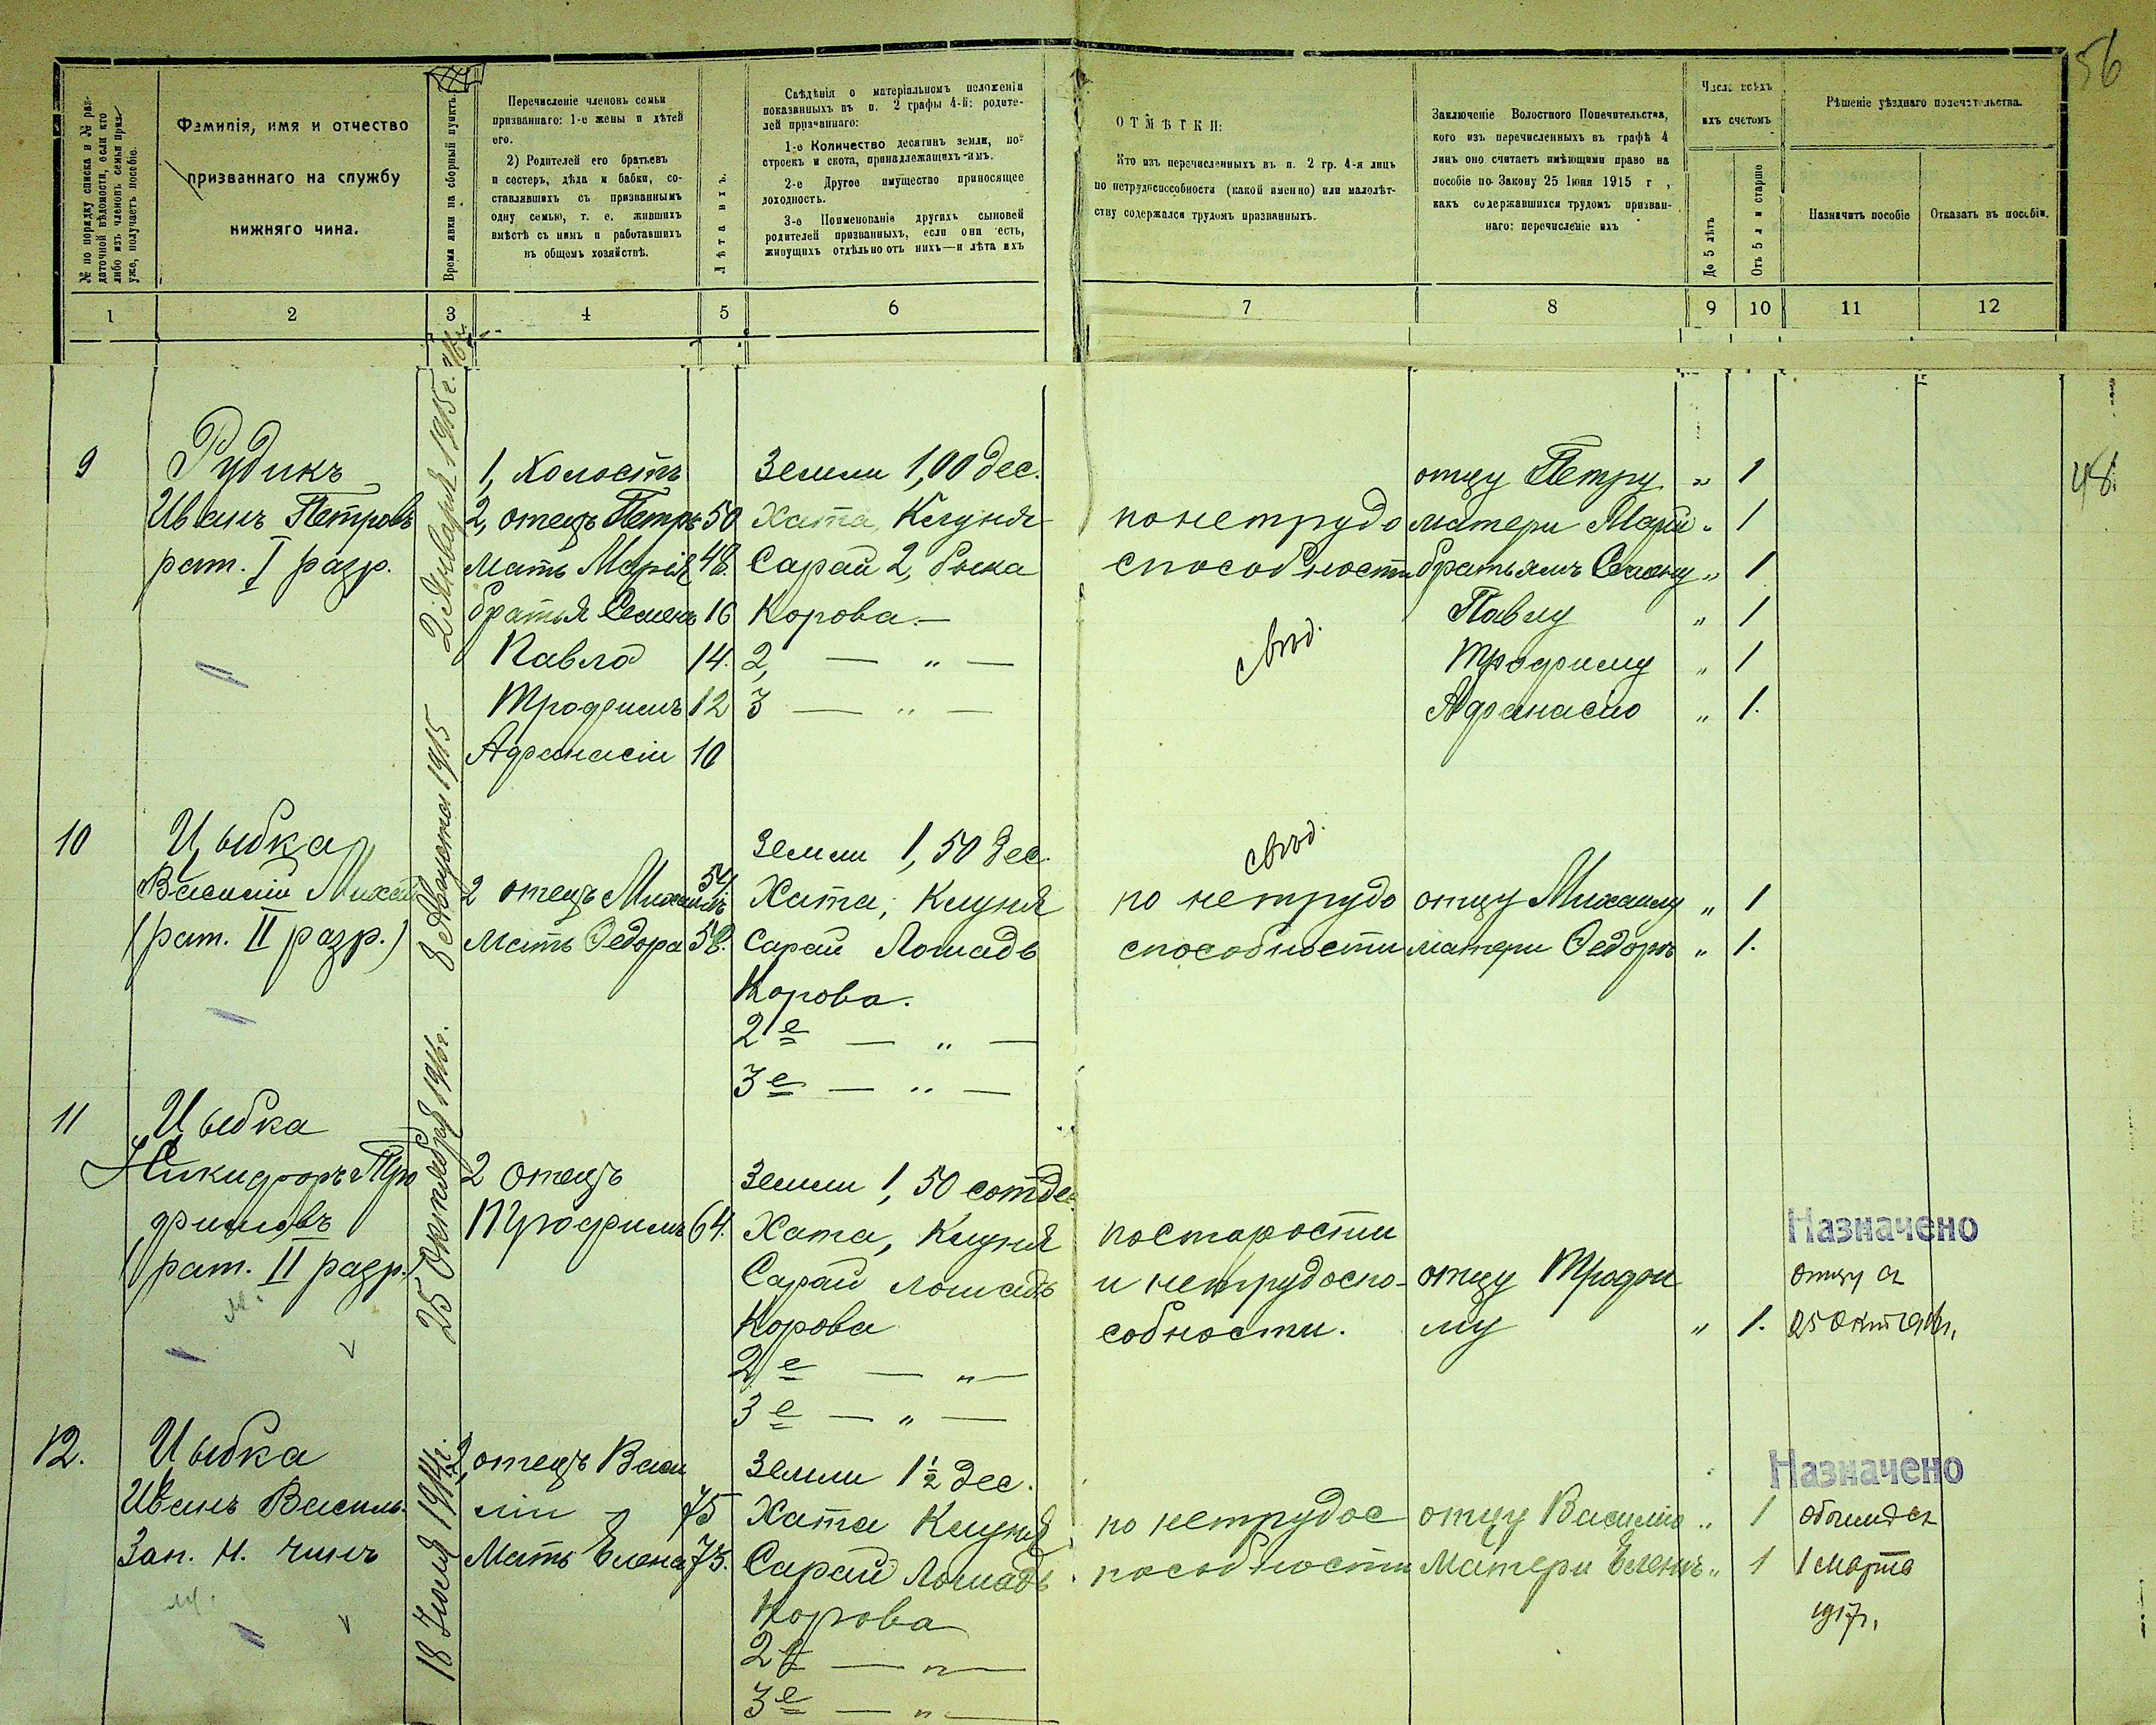 56
№ по порядку списка и № раз-
даточной вѣдомости, если кто
либо изъ членовъ семьи приз-
уже, получаетъ пособіе.
Фамилія, имя и отчество
призваннаго на службу
нижняго чина.
Время явки на сборный пунктъ.
Перечисленіе членовъ семьи
призваннаго: 1-е жены и дѣтей
его.
2) Родителей его братьевъ
и сестеръ, дѣда и бабки, со-
ставлявшихъ съ призваннымъ
одну семью, т. е. жившихъ
вмѣстѣ съ нимъ и работавшихъ
въ общемъ хозяйствѣ.
Лѣта ихъ.
Свѣдѣнія о матеріальномъ положеніи
показанныхъ въ п. 2 графы 4-й: родите-
лей призваннаго:
1-е Количество десятинъ земли, по-
строекъ и скота, принадлежащихъ-имъ.
2-е Другое имущество приносящее
доходность.
3-е Поименованіе другихъ сыновей
родителей призванныхъ, если они есть,
живущихъ отдѣльно отъ нихъ—и лѣта ихъ
ОТМѢТКИ:
Кто изъ перечисленныхъ въ п. 2 гр. 4-я лицъ
по нетрудоспособности (какой именно) или малолѣт-
ству содержался трудомъ призванныхъ.
Заключеніе Волостного Попечительства,
кого изъ перечисленныхъ въ графѣ 4
лицъ оно считаетъ имѣющими право на
пособіе по Закону 25 Іюня 1915 г ,
какъ содержавшихся трудомъ призван-
наго: перечисленіе ихъ
Число всѣхъ
ихъ счетомъ
До 5 лѣтъ
Отъ 5 л и старше
Рѣшеніе уѣзднаго попечительства.
Назначить пособіе
Отказать въ пособіи.
1 2 3 4 5 6 7 8 9 10 11 12
9
Рудикъ
Иванъ Петровъ
рат. I разр.
2 Января 1915г.
1, Холостъ
2, отецъ Петръ 50
мать Марія 48.
братья Семенъ 16
Павло 14.
Трофимъ 12
Афанасій 10
Земли 1,00 дес.
Хата, Клуня
Сарай 2, быка
Корова.—
2, — " —
3 — " —
по нетрудо
способности
отцу Петру " 1
матери Маріи " 1
братьямъ Семену " 1
Павлу " 1
Трофиму " 1
Афанасію " 1.
48.
10
Цыбка
Василій Михай
(рат. II разр.)
8 Августа 1915
2 отецъ Михаилъ 54
мать Федора 58.
Земли 1,50 дес.
Хата, Клуня
Сарай Лошадь
Корова.
2е — " —
3е — " —
по нетрудо
способности
отцу Михаилу " 1
матери Федоръ " 1.
11
Цыбка
Никифоръ Тро
фимовъ
(рат. II разр.)
25 Октября 1916г.
2 отецъ
Трофимъ 64.
Земли 1,50 сот дес
Хата, Клуня
Сарай лошадь
Корова
2е — " —
3е — " —
по старости
и нетрудоспо-
собности.
отцу Трофи
му " 1.
Назначено
отцу съ
25 Окт 1916г.
12.
Цыбка
Иванъ Василь.
Зап. н. чинъ
18 Июля 1914г.
2, отецъ Васи
лій 75
Мать Елена 75.
Земли 1½ дес.
Хата Клуня
Сарай Лошадь
Корова
2е — " —
3е — " —
по нетрудос
пособности
отцу Василію " 1
Матери Еленъ " 1
Назначено
обоимъ съ
1 Марта
1917г.